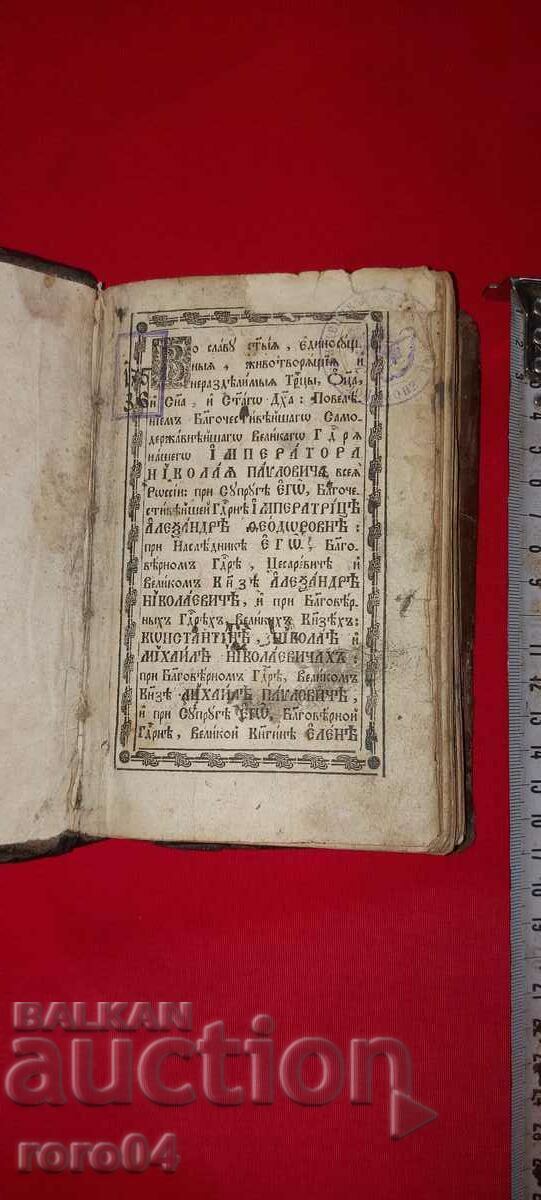 Во славу ст҃ыѧ, единосꙋщ-
ныѧ, животворѧщїѧ и
нераздѣлимыѧ Трⷪ҇цы, Ѻц҃а,
и Сн҃а, и Ст҃агѡ Дх҃а: Повелѣ-
нїемъ Блг҃очестивѣйшагѡ Само-
державнѣйшагѡ Великагѡ Гдⷭ҇рѧ
нашегѡ ІМПЕРАТОРА
НІКОЛАѦ ПАѴЛОВИЧА, всеѧ
Рѡссїи: при Сꙋпрꙋгѣ ЕГѠ, Блг҃оче-
стивѣйшей Гдⷭ҇рнѣ ІМПЕРАТРИЦѢ
АЛЕѮАНДРѢ ѲЕОДѠРОВНѢ:
при Наслѣдникѣ ЕГѠ, Благо-
вѣрномъ Гдⷭ҇рѣ, Цесаревичѣ и
Великомъ Кнѧ҃зѣ АЛЕѮАНДРѢ
НІКОЛАЕВИЧѢ, и при Блг҃овѣр-
ныхъ Гдⷭ҇рехъ, Великихъ Кнѧ҃зехъ:
КѠНСТАНТІНѢ, НІКОЛАѢ и
МИХАИЛѢ НІКОЛАЕВИЧАХЪ:
при Благовѣрномъ Гдⷭ҇рѣ, Великомъ
Кнѧ҃зѣ МИХАИЛѢ ПАѴЛОВИЧѢ,
и при Сꙋпрꙋгѣ ЕГѠ, Благовѣрной
Гдⷭ҇рнѣ, Великой Кнѧги҃нѣ ЕЛЕНѢ
BALKAN
auction
roro04